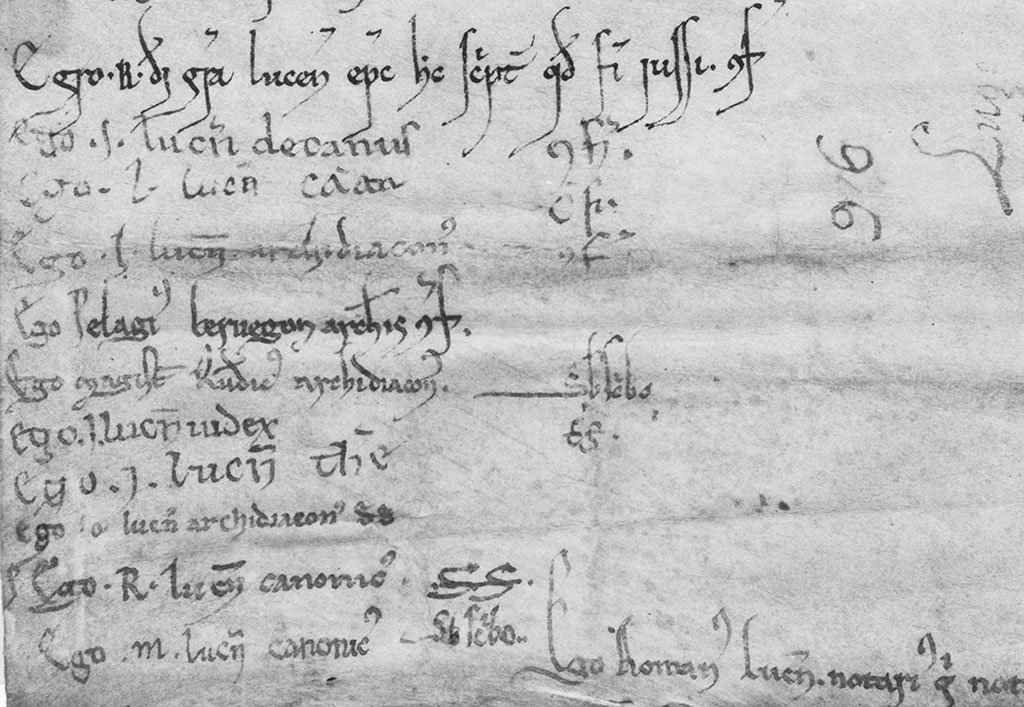 Ego · R · dī gr̄a lucen̄ ep̄c hc scͥpt̄ qd̄ fi͞ jussi · ꝯf
Ego · s · lucn̄ decanus ꝯ fi͞ ·
Ego · l · lucn̄ cātor c fi͞ ·
Ego · J · lucn̄ archidiaconꝰ ꝯ f͞
Ego Pelagiꝰ bervegon arch̄is ꝯf ·
Ego magist̄ Rud̄icꝰ archidiacon̄ · sb̄scͥbo
Ego · J lucn̄ iudex ss ·
Ego · J · lucn̄ th̄e
Ego lucn̄ archidiaconꝰ ss
Ego · R · lucn̄ canonicꝰ · SS ·
Ego · m · lucn̄ canonicꝰ sb̄ scͥbo
Ego Romanꝰ lucn̄ · notariꝰ qͥ not
96